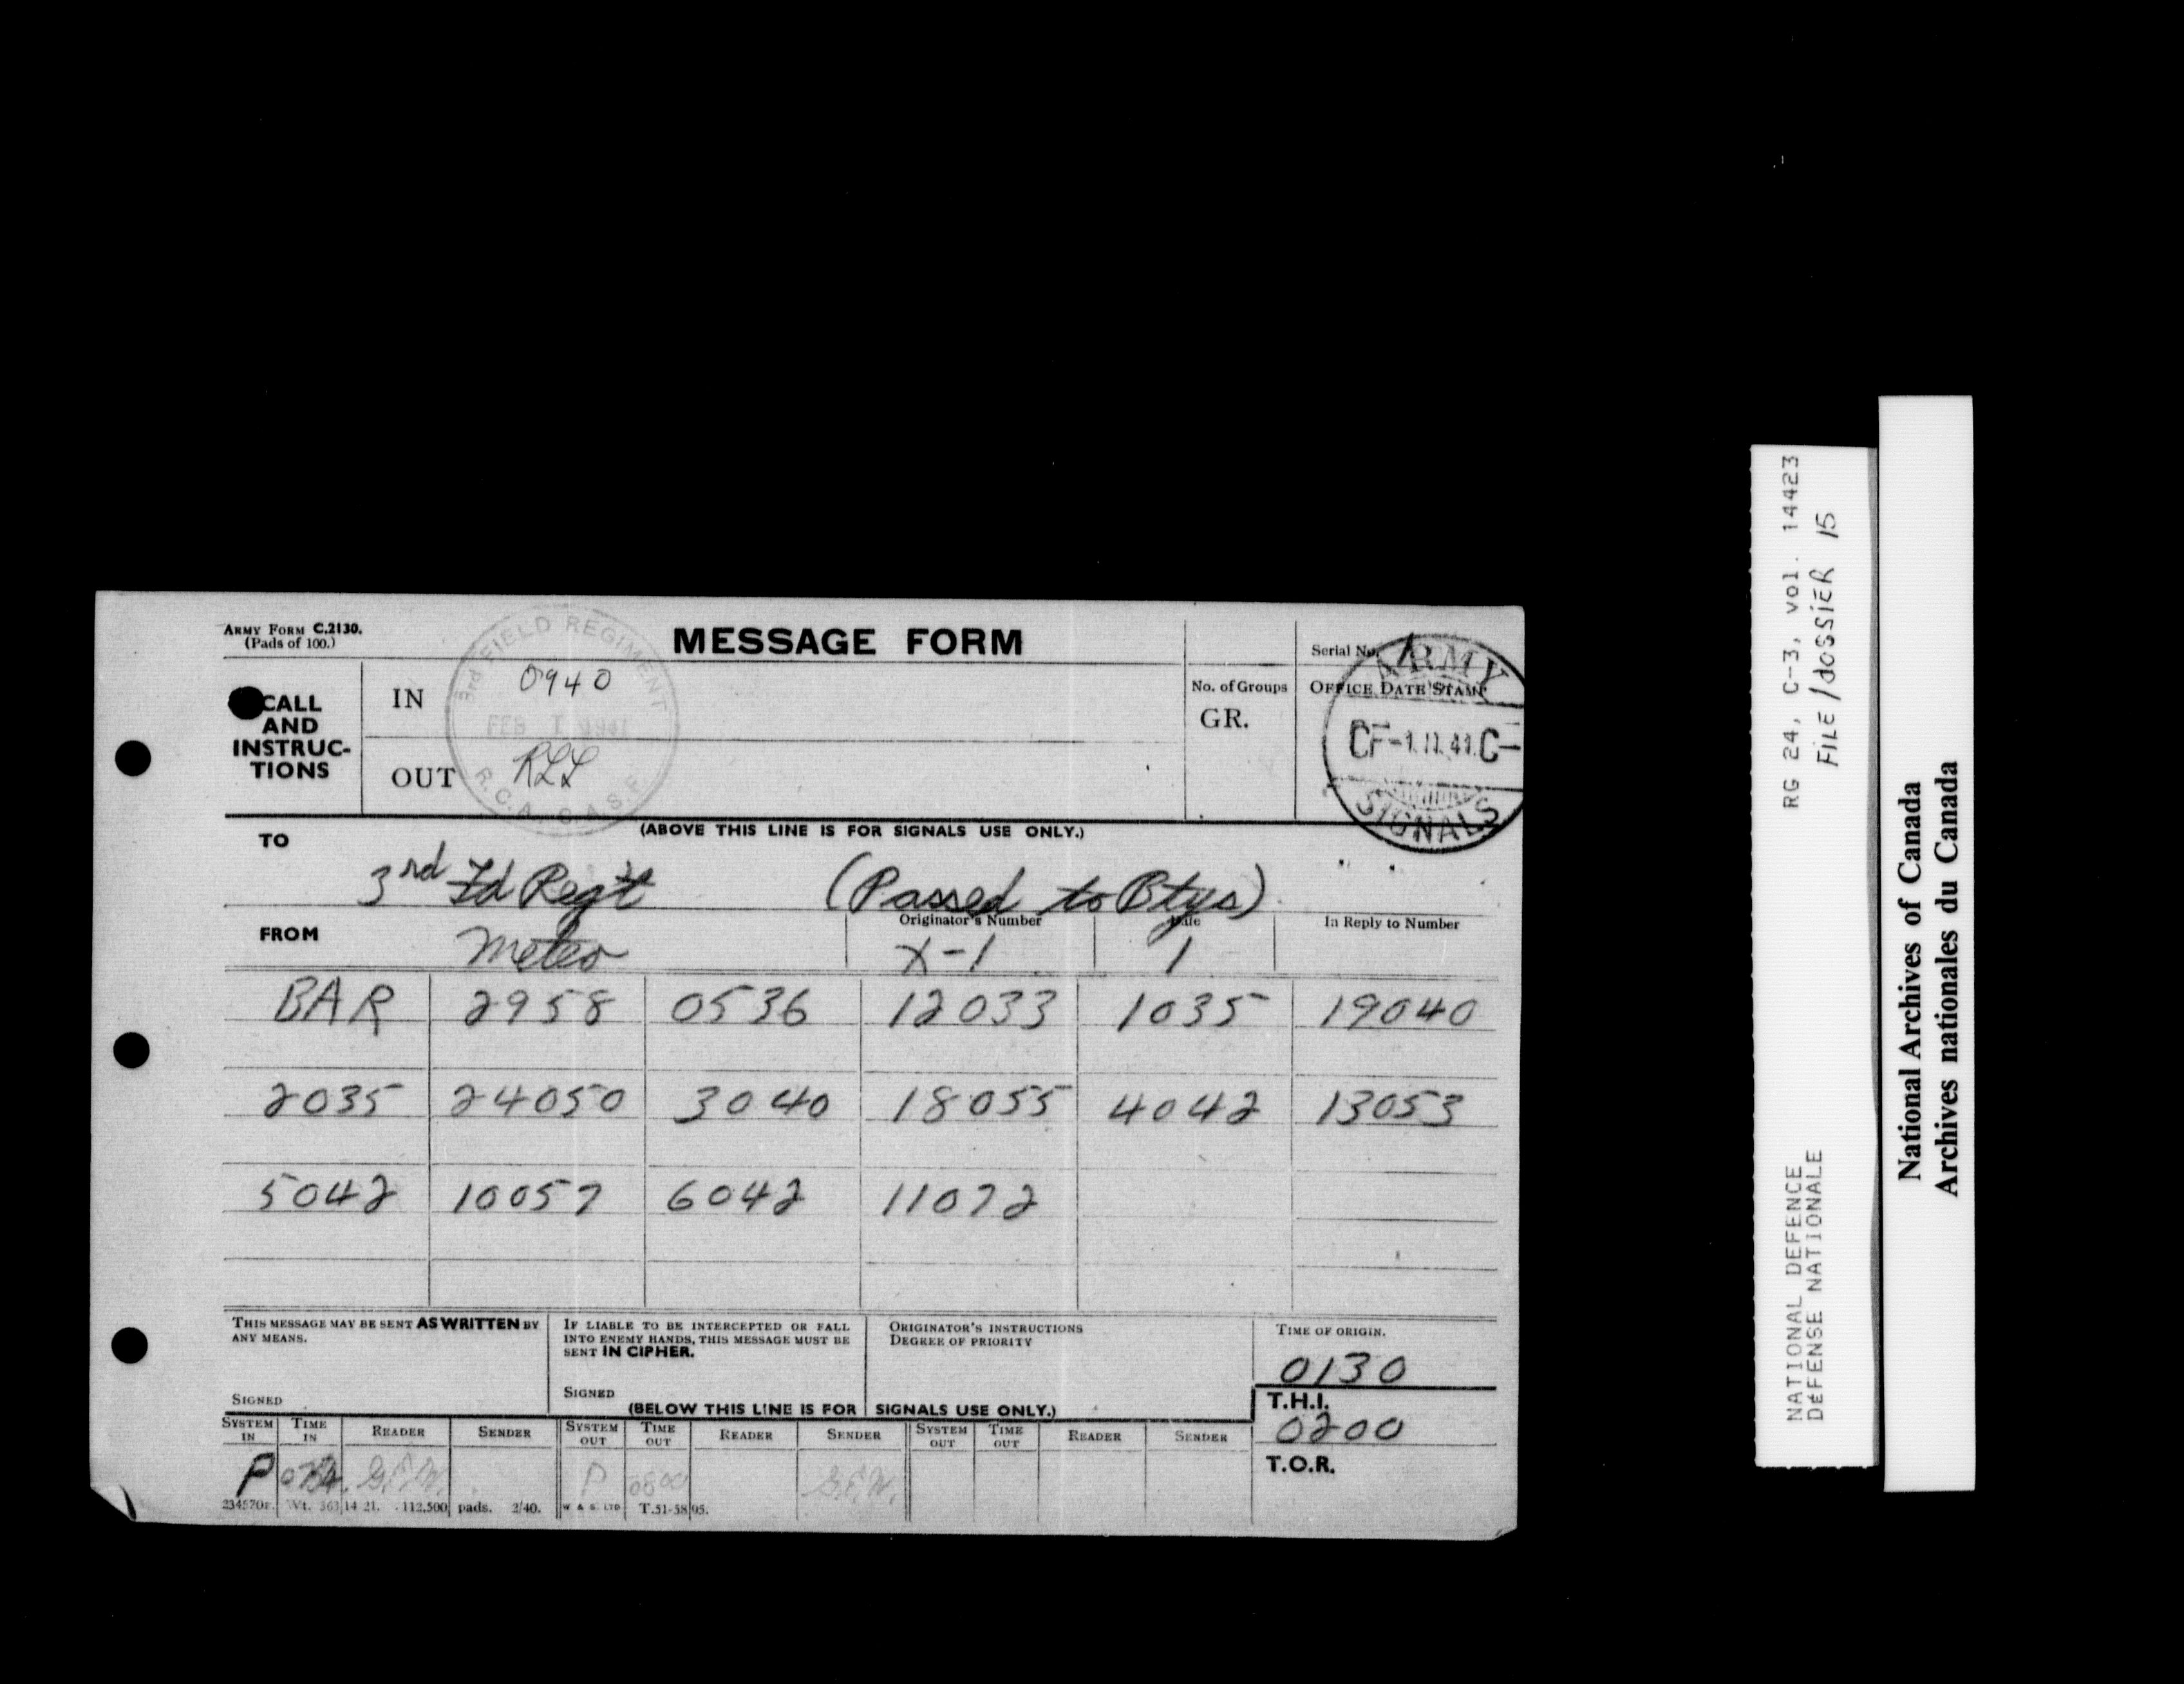 ARMY FORM C.2130.
(Pads of 100.)
MESSAGE FORM
Serial No.
CALL AND INSTRUC-TIONS
IN
0940
OUT
RLL
3rd FIELD REGIMENT
FEB 1 1941
R.C.A. C.A.S.F.
No. of Groups
GR.
OFFICE DATE STAMP
ARMY
CF-1.II.41.C-
SIGNALS
(ABOVE THIS LINE IS FOR SIGNALS USE ONLY.)
TO
3rd Fd Reg't (Passed to Btys)
FROM
Meteo
Originator's Number
X-1
Date
1
In Reply to Number
BAR 2958 0536 12033 1035 19040
2035 24050 3040 18055 4042 13053
5042 10057 6042 11072
THIS MESSAGE MAY BE SENT AS WRITTEN BY
ANY MEANS.
SIGNED
IF LIABLE TO BE INTERCEPTED OR FALL
INTO ENEMY HANDS, THIS MESSAGE MUST BE
SENT IN CIPHER.
SIGNED
ORIGINATOR'S INSTRUCTIONS
DEGREE OF PRIORITY
TIME OF ORIGIN.
0130
T.H.I.
0200
T.O.R.
(BELOW THIS LINE IS FOR SIGNALS USE ONLY.)
SYSTEM IN TIME IN READER SENDER SYSTEM OUT TIME OUT READER SENDER SYSTEM OUT TIME OUT READER SENDER
P P 0800
Wt. 363 14 21. 112,500 pads. 2/40. W & S. LTD T.51-5895.
RG 24, C-3, vol. 14423
FILE/dossier 15
NATIONAL DEFENCE
DÉFENSE NATIONALE
National Archives of Canada
Archives nationales du Canada